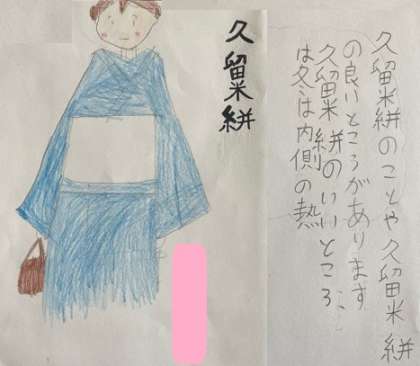 久留米絣のことや久留米絣
の良いところがあります
久留米絣のいいところ
は冬は内側の熱
久留米絣